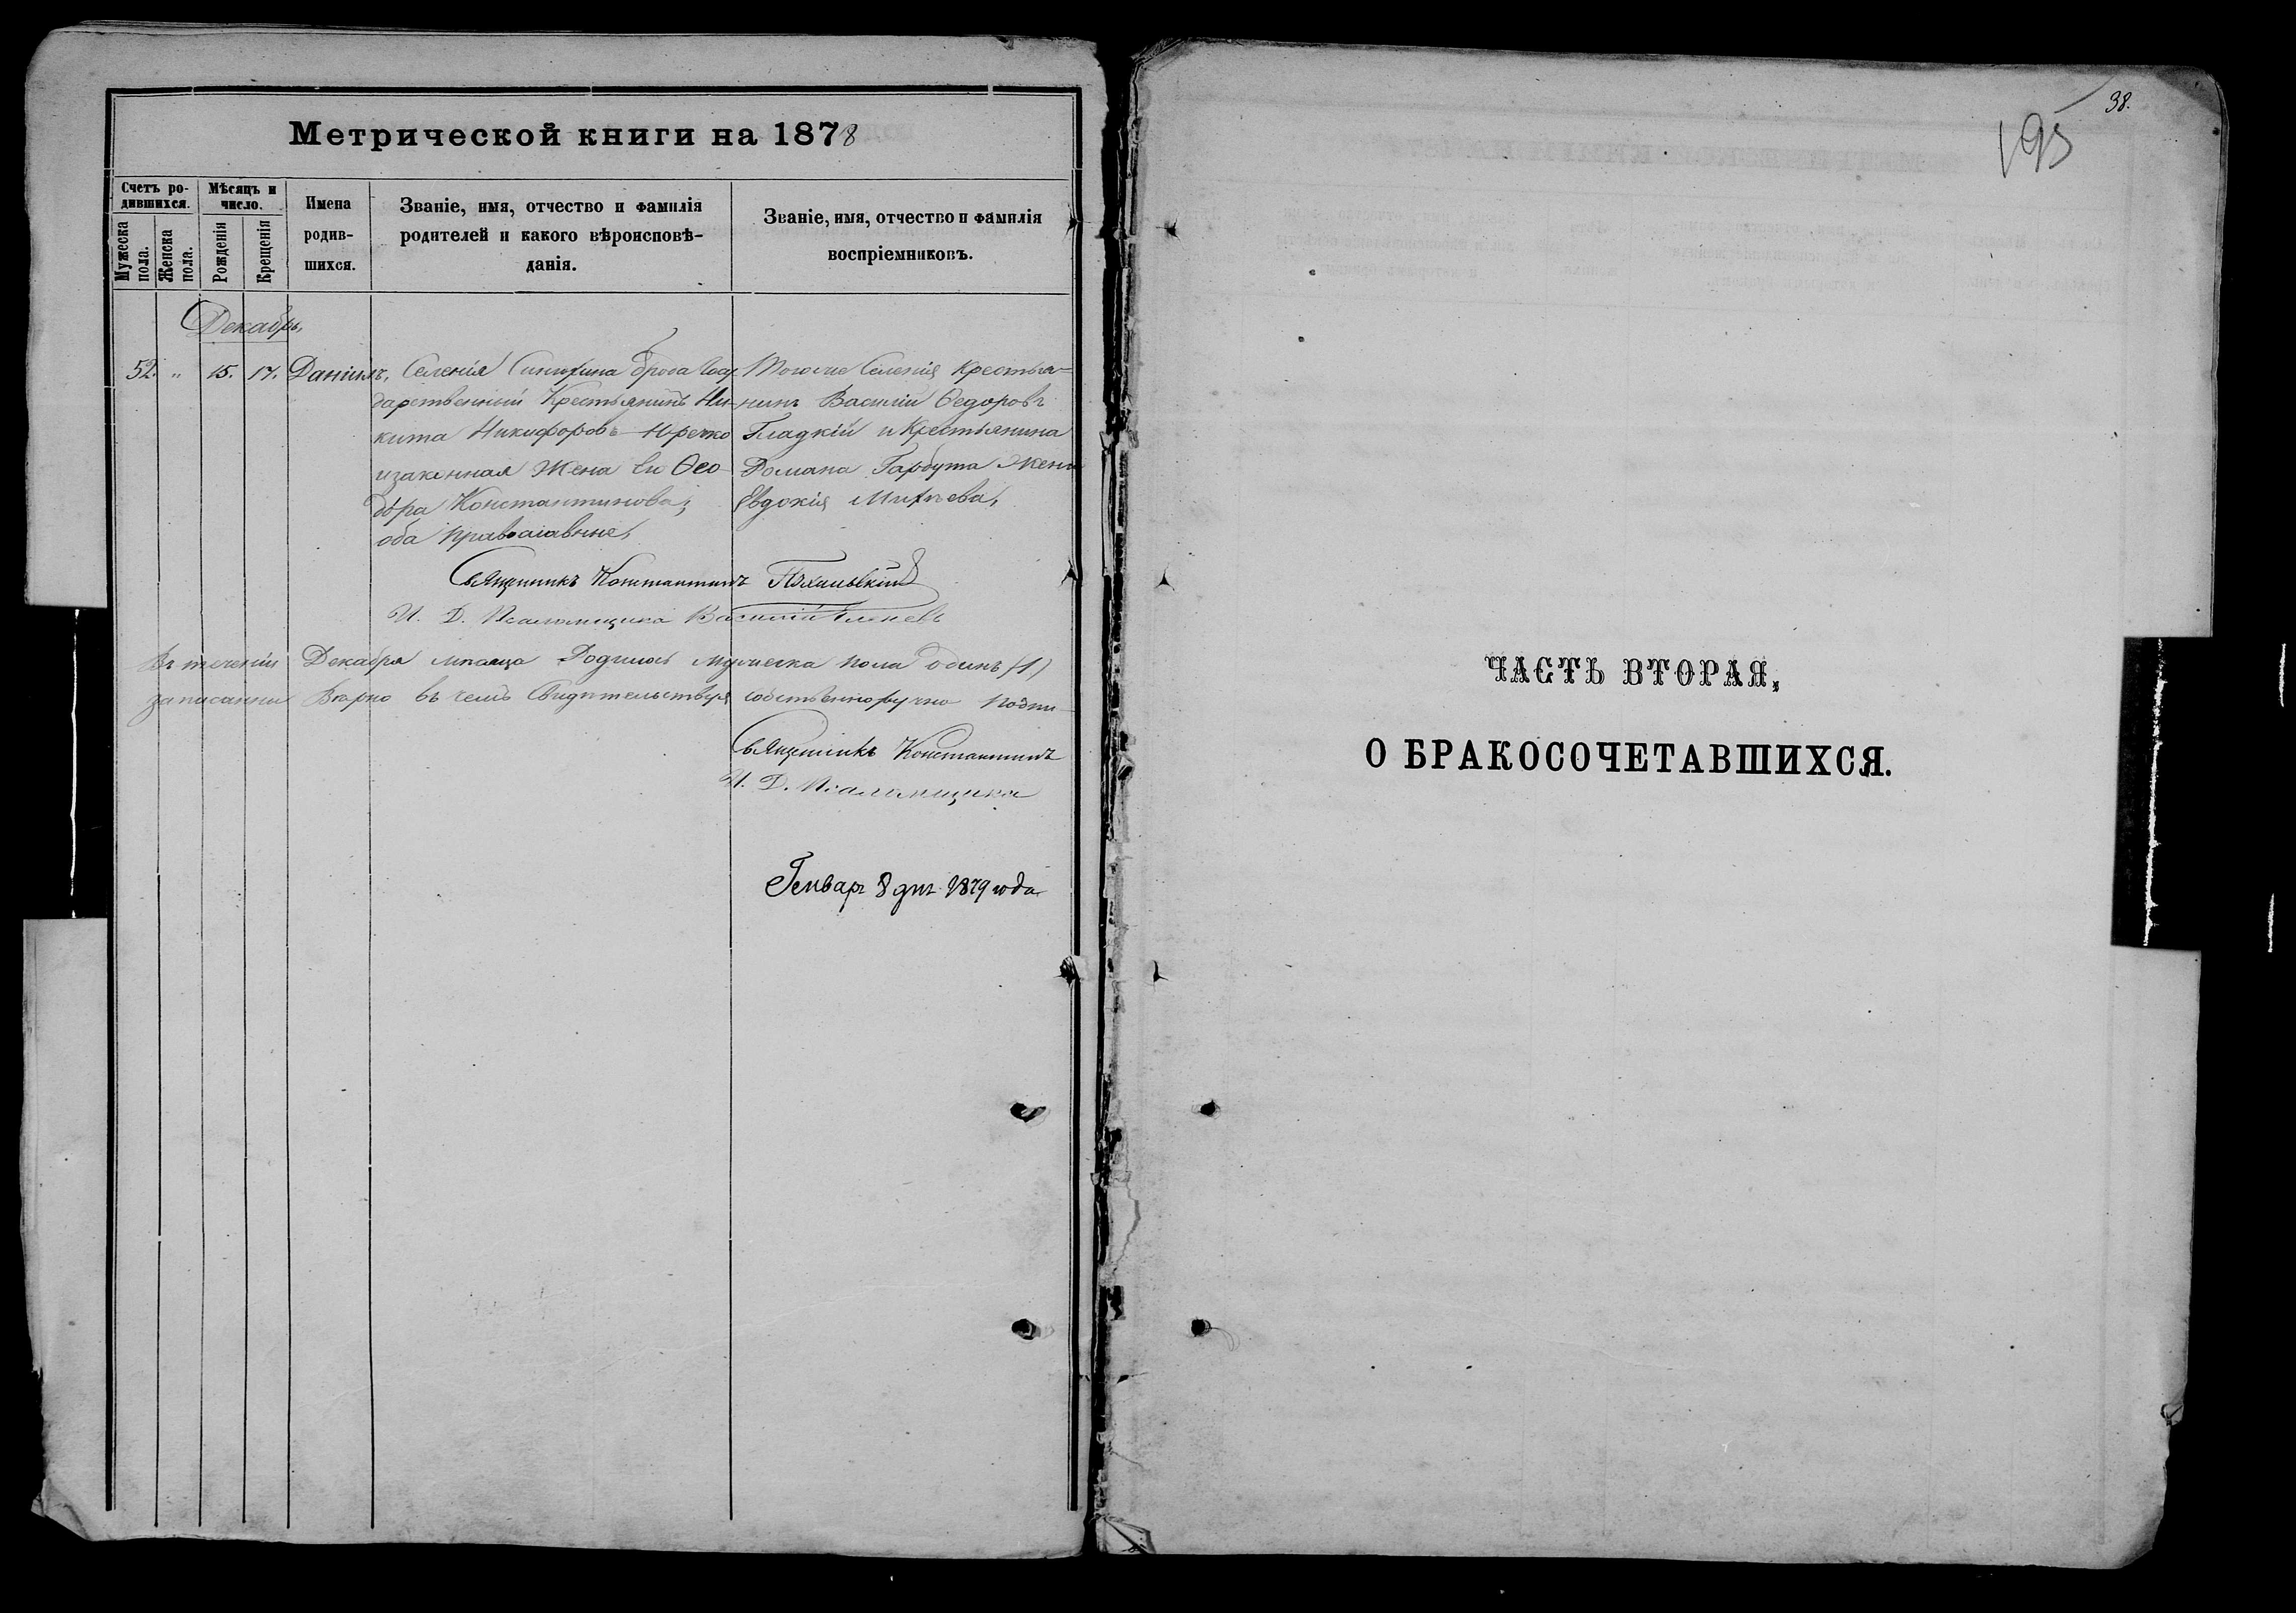 Метрической книги на 1878
Счетъ ро-
дившихся.
Мѣсяцъ и
число.
Мужеска
пола.
Женска
пола.
Рожденія
Крещенія
Имена
родив-
шихся.
Званіе, имя, отчество и фамилія
родителей и какого вѣроисповѣ-
данія.
Званіе, имя, отчество и фамилія
воспріемниковъ.
Декабрь,
52. " 15. 17. Даніилъ,
Селенія Синихина брода Госу
дарственный Крестьянинъ Ни-
кита Никифоровъ
изаконная Жена Его Ѳео
дора Константинова;
оба православные,
Тогоже Селенія Крестья-
нинъ Василій Ѳедоровъ
Гладкій и Крестьянина
Романа Гарбуза Жена
Евдокія Михѣева,
Священникъ Константинъ
И. Д. Псаломщика Василій
Въ теченіи Декабря мѣсяца Родилось мужеска пола Одинъ (1)
записанни Вѣрно въ чемъ Свидѣтельствуя собственноручно подпи
Священникъ Константинъ
И. Д. Псаломщика
Генваря 8 дня 1879 года
38.
195
ЧАСТЬ ВТОРАЯ,
О БРАКОСОЧЕТАВШИХСЯ.